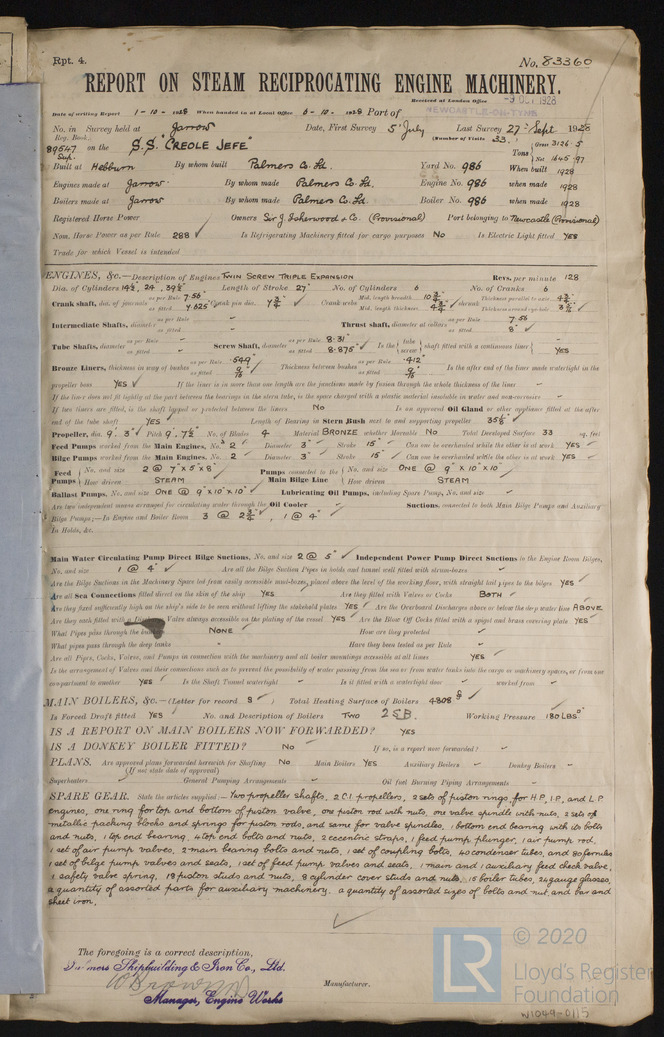 Rpt. 4.
No. 83360
REPORT ON STEAM RECIPROCATING ENGINE MACHINERY.
Received at London Office -9 OCT 1928
Date of writing Report 1-10-1928 When handed in at Local Office 6-10-1928 Port of NEWCASTLE-ON-TYNE
No. in Survey held at Jarrow Date, First Survey 5 July Last Survey 27 Sept 1928
Reg. Book. (Number of Visits 33)
89547 on the S.S. "CREOLE JEFE" Tons Gross 3126.5
Sup. Net 1645.97
Built at Hebburn By whom built Palmers Co. Ld. Yard No. 986 When built 1928
Engines made at Jarrow By whom made Palmers Co. Ld. Engine No. 986 when made 1928
Boilers made at Jarrow By whom made Palmers Co. Ld. Boiler No. 986 when made 1928
Registered Horse Power Owners Sir J. Isherwood & Co. (Provisional) Port belonging to Newcastle (Provisional)
Nom. Horse Power as per Rule 288 ✓ Is Refrigerating Machinery fitted for cargo purposes No Is Electric Light fitted YES
Trade for which Vessel is intended
ENGINES, &c.—Description of Engines TWIN SCREW TRIPLE EXPANSION Revs. per minute 128
Dia. of Cylinders 14½, 24, 39½" Length of Stroke 27" No. of Cylinders 6 No. of Cranks 6
Crank shaft, dia. of journals as per Rule 7.56" as fitted 7.625" Crank pin dia. 7¾" Crank webs Mid. length breadth 10¾" Mid. length thickness 4¾" shrunk Thickness parallel to axis 4¾" Thickness around eye-hole
Intermediate Shafts, diameter as per Rule - as fitted - Thrust shaft, diameter at collars as per Rule 7.56 as fitted 8" ✓
Tube Shafts, diameter as per Rule - as fitted - Screw Shaft, diameter as per Rule 8.31" as fitted 8.875" ✓ Is the tube screw shaft fitted with a continuous liner YES
Bronze Liners, thickness in way of bushes as per Rule .549" as fitted 9/16" Thickness between bushes as per Rule .412" as fitted 9/16" Is the after end of the liner made watertight in the
propeller boss YES ✓ If the liner is in more than one length are the junctions made by fusion through the whole thickness of the liner -
If the liner does not fit tightly at the part between the bearings in the stern tube, is the space charged with a plastic material insoluble in water and non-corrosive -
If two liners are fitted, is the shaft lapped or protected between the liners No Is an approved Oil Gland or other appliance fitted at the after
end of the tube shaft YES Length of Bearing in Stern Bush next to and supporting propeller 35½" ✓
Propeller, dia. 9'.3" Pitch 9'.7½" No. of Blades 4 Material BRONZE whether Moveable No Total Developed Surface 33 sq. feet
Feed Pumps worked from the Main Engines, No. 2 ✓ Diameter 3" Stroke 15" ✓ Can one be overhauled while the other is at work YES ✓
Bilge Pumps worked from the Main Engines, No. 2 Diameter 3" Stroke 15" ✓ Can one be overhauled while the other is at work YES ✓
Feed Pumps No. and size 2 @ 7"x5"x8" Pumps connected to the Main Bilge Line No. and size ONE @ 9"x10"x10"
How driven STEAM How driven STEAM
Ballast Pumps, No. and size ONE @ 9"x10"x10" Lubricating Oil Pumps, including Spare Pump, No. and size -
Are two independent means arranged for circulating water through the Oil Cooler - Suctions, connected to both Main Bilge Pumps and Auxiliary
Bilge Pumps;—In Engine and Boiler Room 3 @ 2¾", 1 @ 4"
In Holds, &c.
Main Water Circulating Pump Direct Bilge Suctions, No. and size 2 @ 5" ✓ Independent Power Pump Direct Suctions to the Engine Room Bilges,
No. and size 1 @ 4" ✓ Are all the Bilge Suction Pipes in holds and tunnel well fitted with strum-boxes
Are the Bilge Suctions in the Machinery Space led from easily accessible mud-boxes, placed above the level of the working floor, with straight tail pipes to the bilges YES ✓
Are all Sea Connections fitted direct on the skin of the ship YES Are they fitted with Valves or Cocks BOTH ✓
Are they fixed sufficiently high on the ship's side to be seen without lifting the stokehold plates YES ✓ Are the Overboard Discharges above or below the deep water line ABOVE
Are they each fitted with a Discharge Valve always accessible on the plating of the vessel YES ✓ Are the Blow Off Cocks fitted with a spigot and brass covering plate YES ✓
What Pipes pass through the bunkers NONE ✓ How are they protected -
What pipes pass through the deep tanks - Have they been tested as per Rule -
Are all Pipes, Cocks, Valves, and Pumps in connection with the machinery and all boiler mountings accessible at all times YES ✓
Is the arrangement of Valves and their connections such as to prevent the possibility of water passing from the sea or from water tanks into the cargo or machinery spaces, or from one
compartment to another YES ✓ Is the Shaft Tunnel watertight - Is it fitted with a watertight door - worked from -
MAIN BOILERS, &c.—(Letter for record S ✓) Total Heating Surface of Boilers 4308 ✓
Is Forced Draft fitted YES No. and Description of Boilers TWO 2 S.B. Working Pressure 180 LBS
IS A REPORT ON MAIN BOILERS NOW FORWARDED? YES
IS A DONKEY BOILER FITTED? No ✓ If so, is a report now forwarded? -
PLANS. Are approved plans forwarded herewith for Shafting No Main Boilers YES Auxiliary Boilers - Donkey Boilers -
(If not state date of approval)
Superheaters General Pumping Arrangements - Oil fuel Burning Piping Arrangements -
SPARE GEAR. State the articles supplied:— Two propeller shafts, 2 C.I. propellers, 2 sets of piston rings for H.P, I.P, and L.P
engines, one ring for top and bottom of piston valve, one piston rod with nuts, one valve spindle with nuts, 2 sets of
metallic packing blocks and springs for piston rods, and same for valve spindles, 1 bottom end bearing with its bolts
and nuts, 1 top end bearing, 4 top end bolts and nuts, 2 eccentric straps, 1 feed pump plunger, 1 air pump rod,
1 set of air pump valves, 2 main bearing bolts and nuts, 1 set of coupling bolts, 40 condenser tubes, and 80 ferrules
1 set of bilge pump valves and seats, 1 set of feed pump valves and seats, 1 main and 1 auxiliary feed check valve,
1 safety valve spring, 18 piston studs and nuts, 8 cylinder cover studs and nuts, 15 boiler tubes, 24 gauge glasses,
a quantity of assorted parts for auxiliary machinery. a quantity of assorted sizes of bolts and nut, and bar and
sheet iron.
✓
The foregoing is a correct description,
Palmers Shipbuilding & Iron Co., Ltd.
Manufacturer.
Manager, Engine Works
© 2020
LR
Lloyd's Register
Foundation
W1049-0115